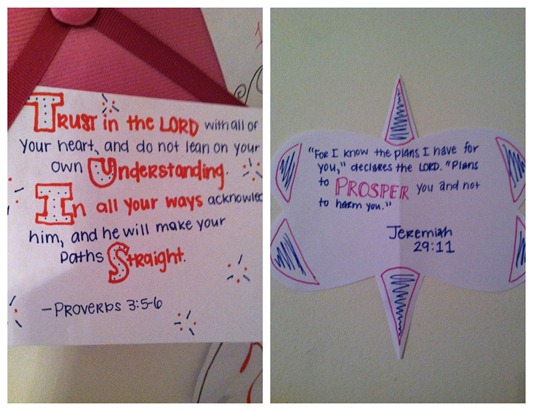 Trust in the LORD with all of
your heart, and do not lean on your
own Understanding.
In all your ways acknowled
him, and he will make your
paths Straight.
-Proverbs 3:5-6
"For I know the plans I have for
you," declares the LORD. "Plans
to PROSPER you and not
to harm you."
Jeremiah
29:11